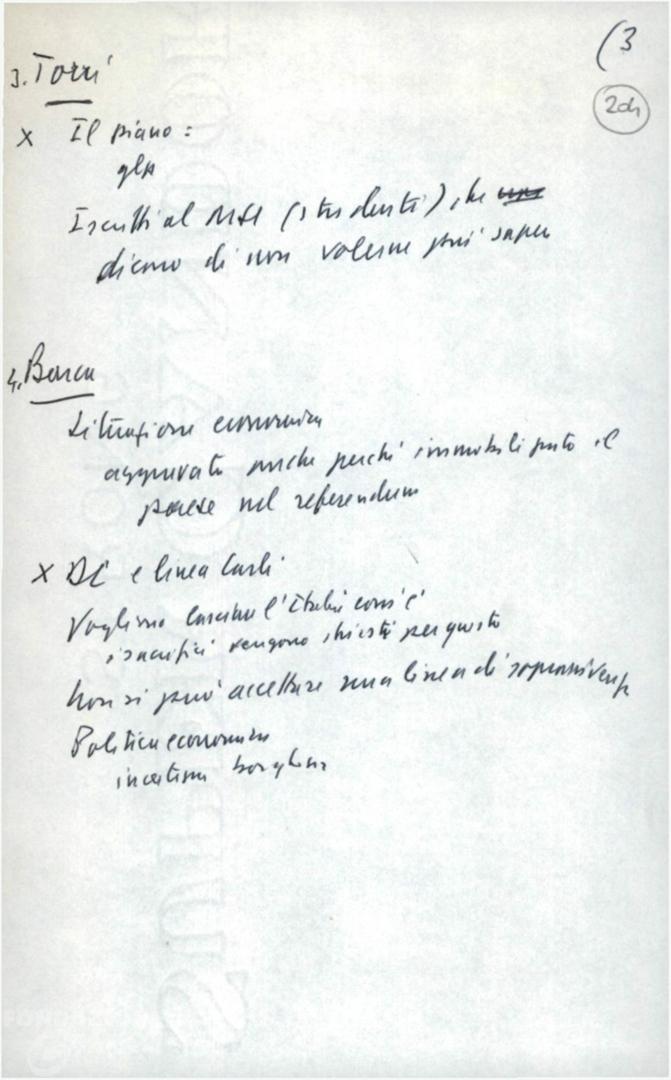 (3
204
3. Torri
x Il piano:
Iscritti al MSI (studenti), che
dicono di non volerne più saper
4. Barca
Situazione economica
aggravata anche perché immobilizzato il
paese nel referendum
x DC e linea Carli
Vogliono lasciare l'Italia com'è
i sacrifici vengono chiesti per questo
Non si può accettare una linea di sopravvivenza
Politica economica